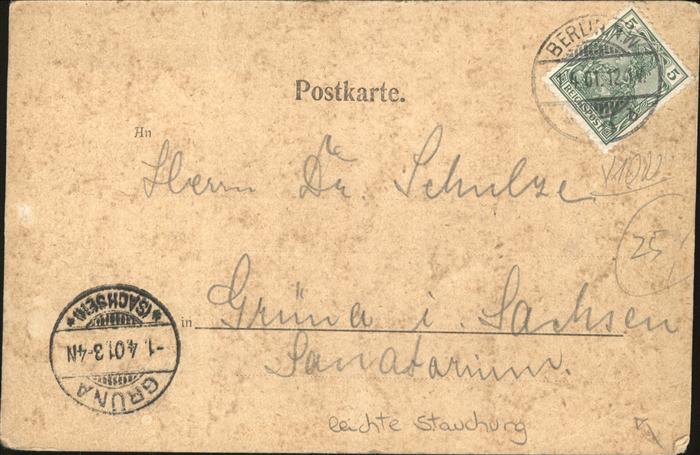 Postkarte.
BERLIN
5 5
REICHSPOST
.4.01.12-1
An
Herrn Dr. Schulze
25
in Grüna i. Sachsen
Sanatorium.
GRÜNA
-1.4.01.3-4N
*(SACHSEN)*
leichte Stauchung